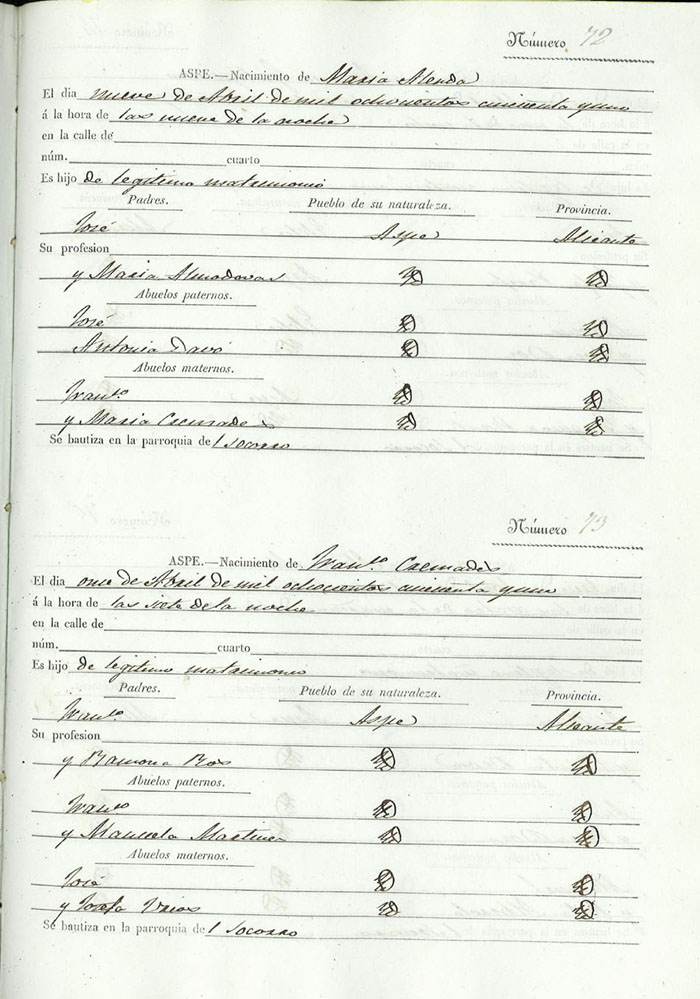 Número 72
ASPE.—Nacimiento de Maria Alenda
El dia nueve de Abril de mil ochocientos cincuenta y uno
á la hora de las nueve de la noche
en la calle de
núm. cuarto
Es hijo de legitimo matrimonio
Padres. Pueblo de su naturaleza. Provincia.
José Aspe Alicante
Su profesion
y Maria Almodovar
Abuelos paternos.
José
Antonia Davó
Abuelos maternos.
Franco
y Maria Cremades
Se bautiza en la parroquia de l Socorro
Número 73
ASPE.—Nacimiento de Franco Cremades
El dia once de Abril de mil ochocientos cincuenta y uno
á la hora de las siete de la noche
en la calle de
núm. cuarto
Es hijo de legitimo matrimonio
Padres. Pueblo de su naturaleza. Provincia.
Franco Aspe Alicante
Su profesion
y Ramona Ros
Abuelos paternos.
Franco
y Manuela Martinez
Abuelos maternos.
José
y Josefa
Se bautiza en la parroquia de l Socorro